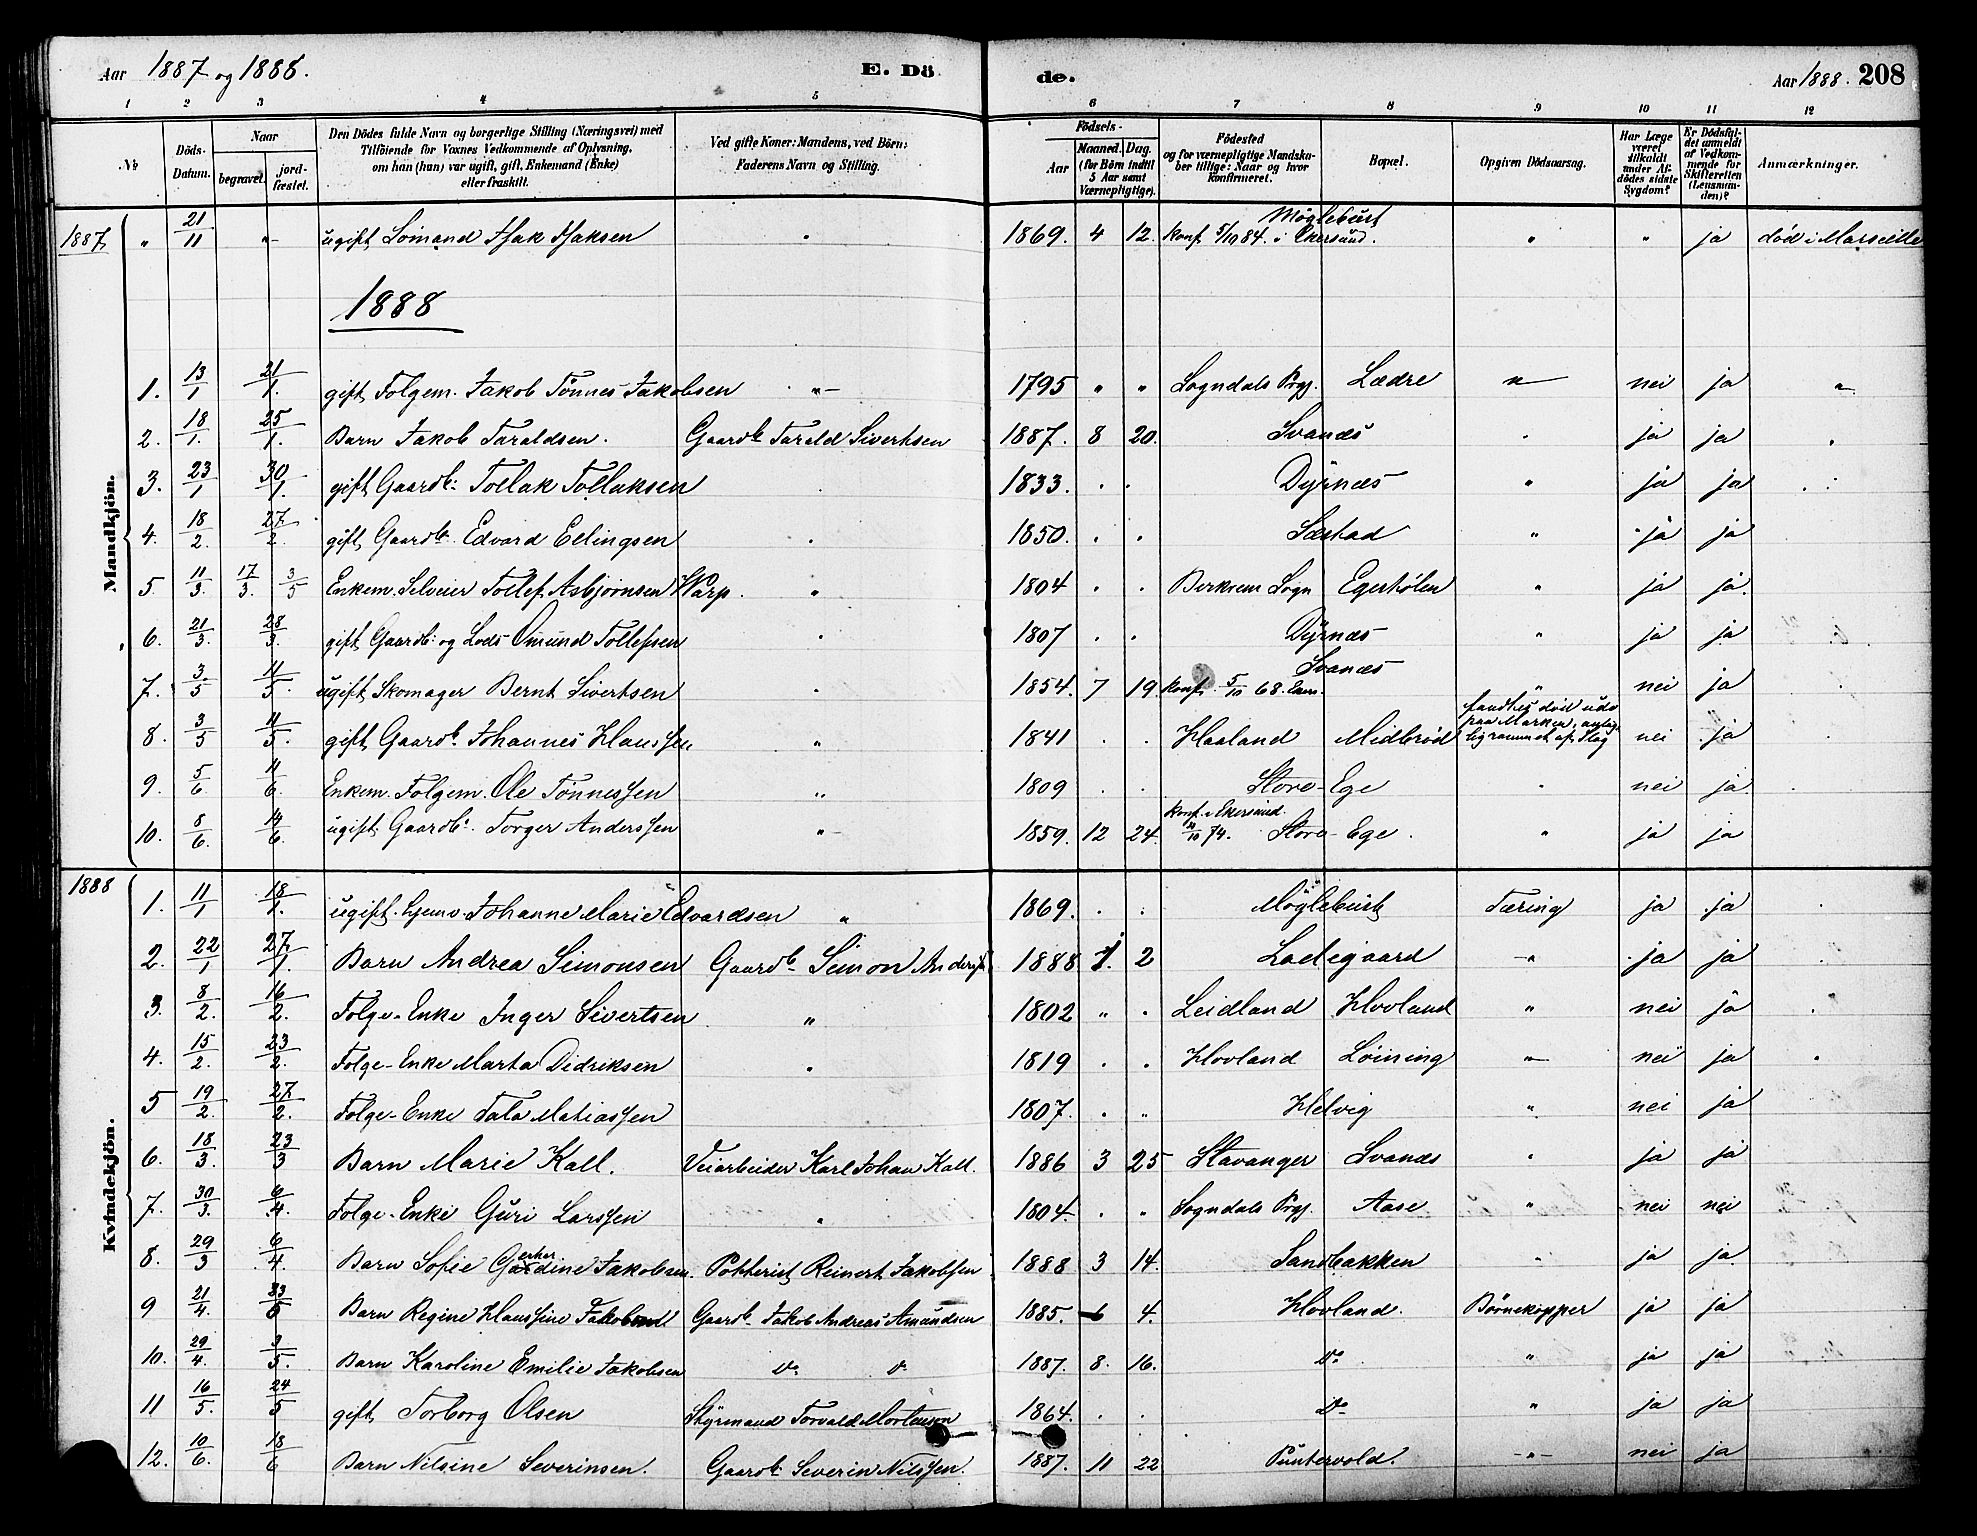 Aar 1887 og 1888. E. Dö de. Aar 1888. 208
1 2 3 4 5 6 7 8 9 10 11 12
No Döds-Datum. Naar begravet. jordfæstet. Den Dödes fulde Navn og borgerlige Stilling (Næringsvei) med Tilföiende for Voxnes Vedkommende af Oplysning, om han (hun) var ugift, gift, Enkemand (Enke) eller fraskilt. Ved gifte Koner: Mandens, ved Börn: Faderens Navn og Stilling. Födsels- Aar Maaned. Dag. (for Börn indtil 5 Aar samt Værnepligtige). Födested og for værnepligtige Mandskaber tillige: Naar og hvor konfirmeret. Bopæl. Opgiven Dödsaarsag. Har Læge været tilkaldt under Afdödes sidste Sygdom? Er Dödsfaldet anmeldt af Vedkommende for Skifteretten (Lensmanden)? Anmærkninger.
1887 " 21/11 " ugift Sømand Isak Isaksen " 1869. 4 12. konf. 5/10 84. i Ekersund. Møglebust " " ja død i Marseille
1888
Mandkjön.
1. 13/1 21/1. gift Folgem. Jakob Tønnes Jakobsen " 1795 " " Sogndals Prgj. Lædre " nei ja "
2. 18/1. 25/1. Barn Jakob Taraldsen. Gaardb. Tarald Sivertsen 1887. 8 20. Svanes " ja ja "
3. 23/1 30/1. gift Gaardb: Tollak Tollaksen . 1833. . . Dyrnæs " ja ja .
4. 18/2. 27/2. gift Gaardb. Edvard Erlingsen . 1850. . . Sæstad " ja ja
5. 11/3. 17/3. 3/5 Enkem. Selveier Tollef Asbjørnsen Warp. " 1804 . . Birkrem Sogn Egerhølen " ja ja.
6. 21/3. 28/3. gift Gaardb: og Lods Omund Tollefsen . 1807 . . Dyrnæs " ja ja
7. 3/5 11/5. ugift Skomager Bernt Sivertsen . 1854. 7 19. konf. 5/10 68. Svanæs " nei ja
8. 3/5 11/5. gift Gaardb. Johannes Klaussen " 1841 . . Haaland Midbrød fandtes død ude paa Marken, rammet af Slag nei ja
9. 5/6 11/6. Enkem. Folgem. Ole Tønnessen " 1809 . . Store-Ege " nei ja.
10. 8/6. 14/6. ugift Gaardb. Torger Anderssen " 1859. 12 24. konf. i Ekersund 74. Store-Ege. " ja ja
1888
Kvindekjön.
1. 11/1 18/1. ugift hjemv. Johanne Marie Edvardsen " 1869. . . Møglebust Tæring ja ja
2. 22/1 27/1. Barn Andrea Simonsen Gaardb. Simon Anders. 1888 1. 2 Ladegaard " ja ja
3. 8/2. 16/2. Folge-Enke Inger Sivertsen " 1802 " . Leidland Hovland " nei ja
4. 15/2. 23/2. Folge-Enke Marta Didriksen " 1819 . . Hovland Løining " nei ja
5 19/2. 27/2. Folge-Enke Tala Matiassen 1807. . " Helvig " nei ja
6. 18/3. 23/3 Barn Marie Kall. Veiarbeider Karl Johan Kall. 1886 3 25 Stavanger Svanes " ja ja
7. 30/3. 6/4. Folge-Enke Guri Larssen " 1804. . " Sogndals Prgj. Aase " nei nei
8. 29/3 6/4. Barn Sofie Gerhardine Jakobsen. Potterist Reinert Jakobsen 1888 3 14. Sandbakken " ja ja.
9 21/4. Barn Regine Klaussine Gaardb. Jakob Andreas Amundsen 1885. 6 4. Hovland. Børnekopper ja ja
10. 29/4. 3/5. Barn Karoline Emilie Jakobsen Do Do 1887. 8. 16. Do " ja ja
11 16/5. 24/5 gift Torborg Olsen Styrmand Torvald Mortensen 1864. . . Do " ja ja
12. 10/6. 18/6 Barn Nilsine Severinsen. Gaardb. Severin Nilssen. 1887. 11 22 Puntervold. " nei ja